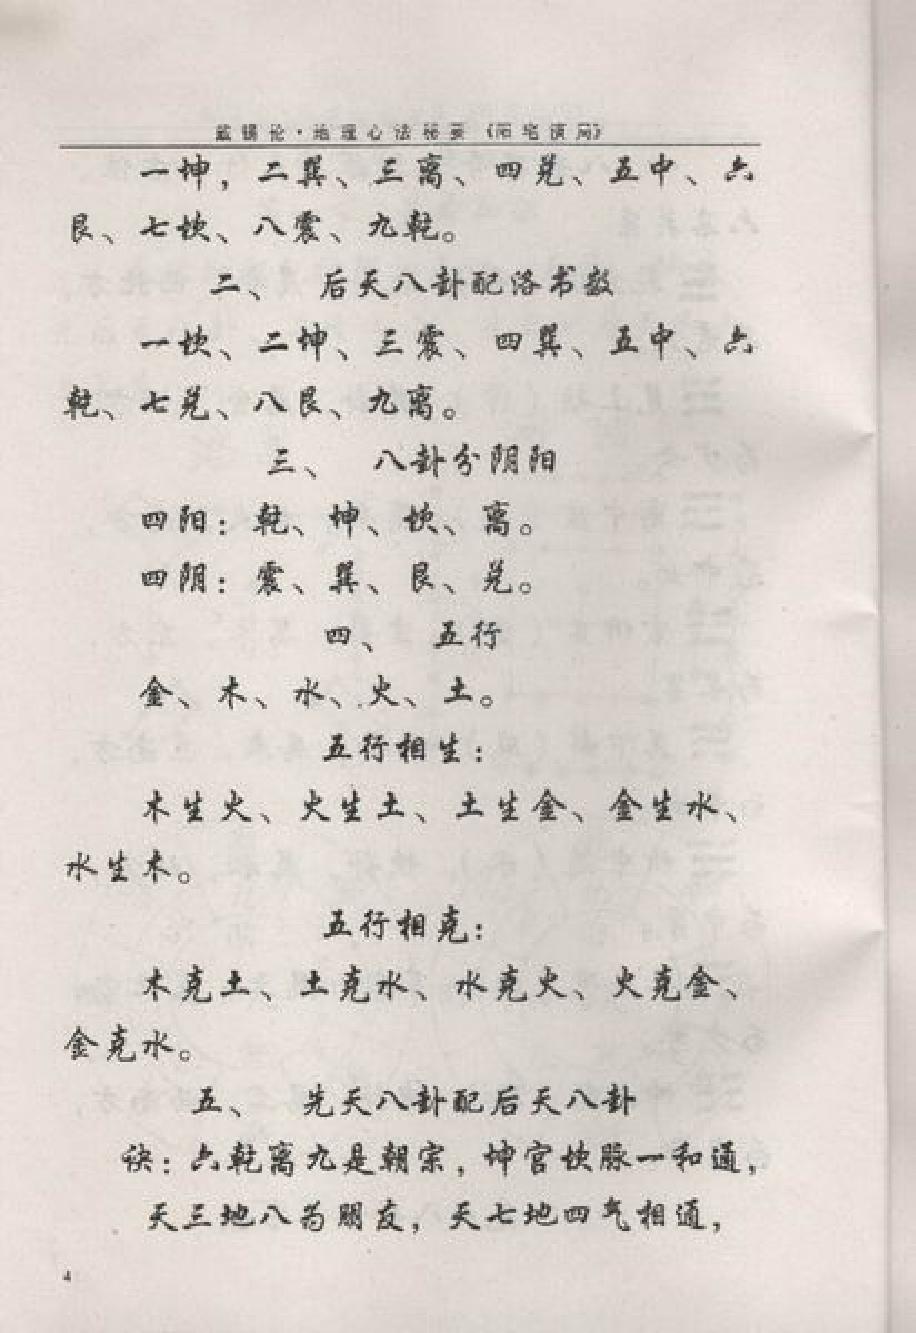 地理心法秘要《阳宅演局》
一坤，二巽、三离、四兑、五中、六
艮、七坎、八震、九乾。
二、 后天八卦配洛书数
一坎、二坤、三震、四巽、五中、六
乾、七兑、八艮、九离。
三、 八卦分阴阳
四阳：乾、坤、坎、离。
四阴：震、巽、艮、兑。
四、 五行
金、木、水、火、土。
五行相生：
木生火、火生土、土生金、金生水、
水生木。
五行相克：
木克土、土克水、水克火、火克金、
金克水。
五、 先天八卦配后天八卦
诀：六乾离九是朝宗，坤宫坎脉一和通，
天三地八为朋友，天七地四气相通，
4